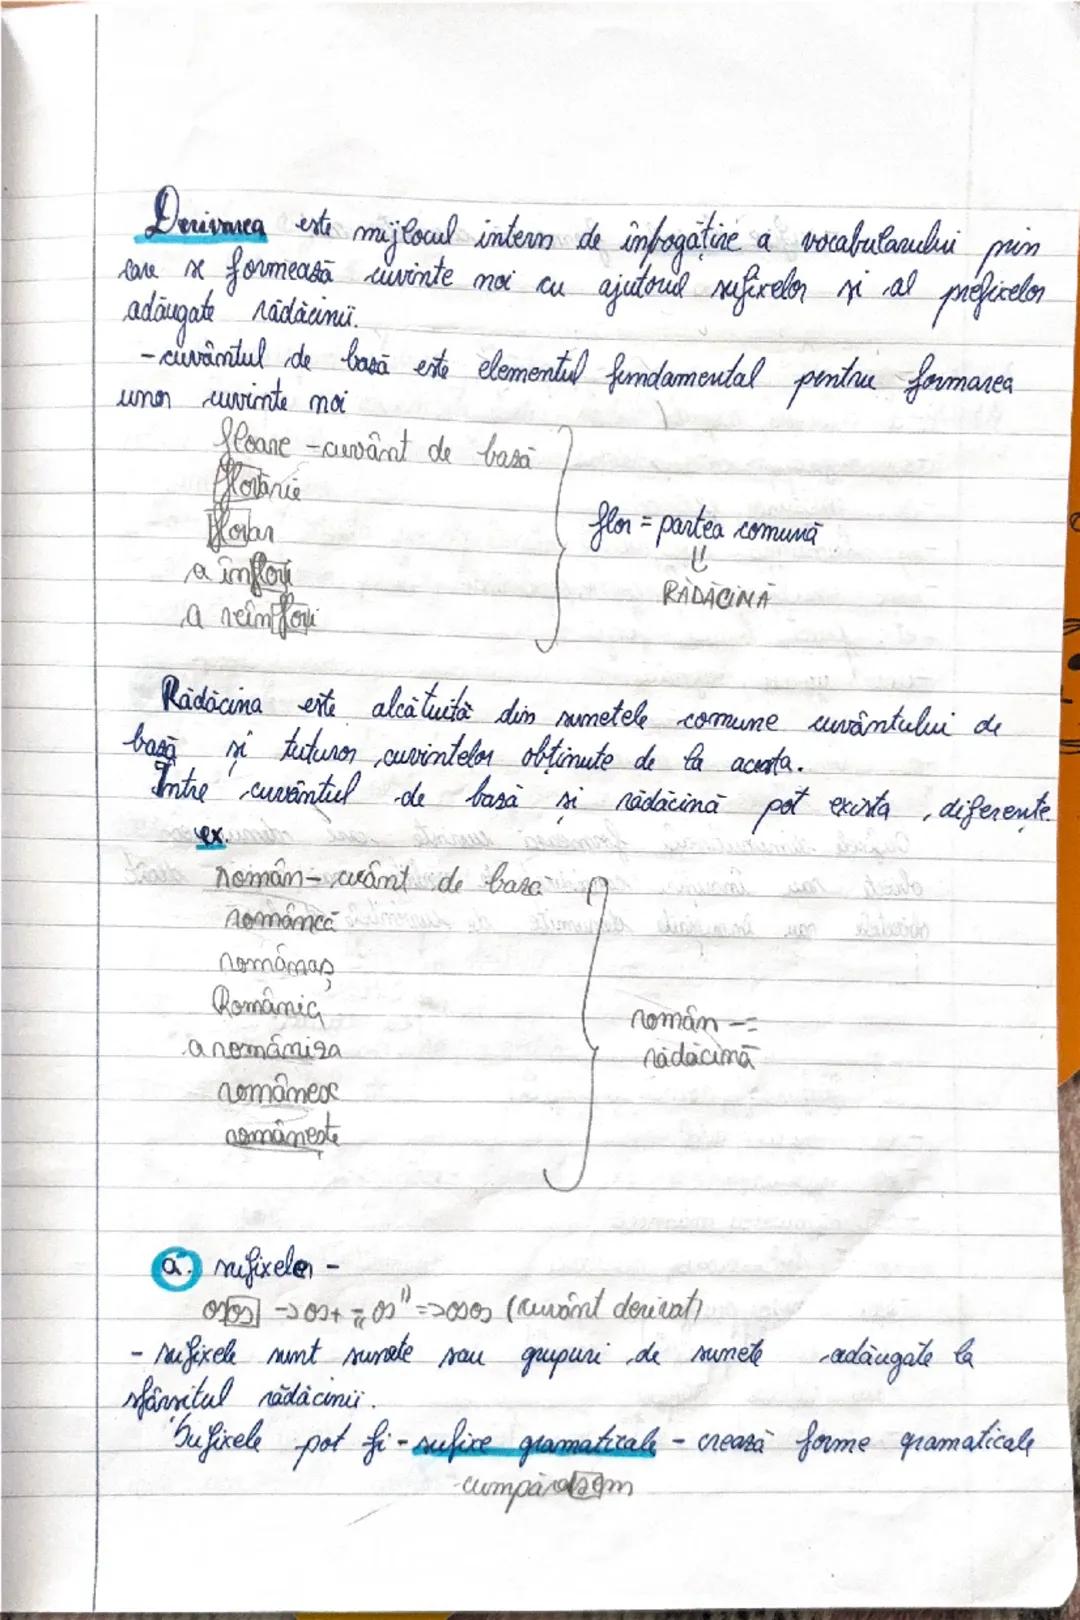 Derivarea este mijlocul intern de înbogățire a vocabularului prin
care se formează cuvinte noi cu ajutorul sufixelor și al prefixelor
adăugate rădăcinii.
- cuvântul de bază este elementul fundamental pentru formarea
unor cuvinte noi
floare - cuvânt de bază
florărie
florar
a înflori
a reînflori
flor = partea comună
⇓
RĂDĂCINĂ
Rădăcina este alcătuită din sunetele comune cuvântului de
bază și tuturor cuvintelor obținute de la acesta.
Între cuvântul de bază și rădăcină pot exista diferențe.
ex.
român - cuânt de bază
româncă
românaș
România
a româniza
românesc
românește
român -=
rădăcină
a. sufixelor -
osos -> os + „os" => osos (cuvânt derivat)
- sufixele sunt sunete sau grupuri de sunete adăugate la
sfârșitul rădăcinii.
Sufixele pot fi - sufixe gramaticale - crează forme gramaticale